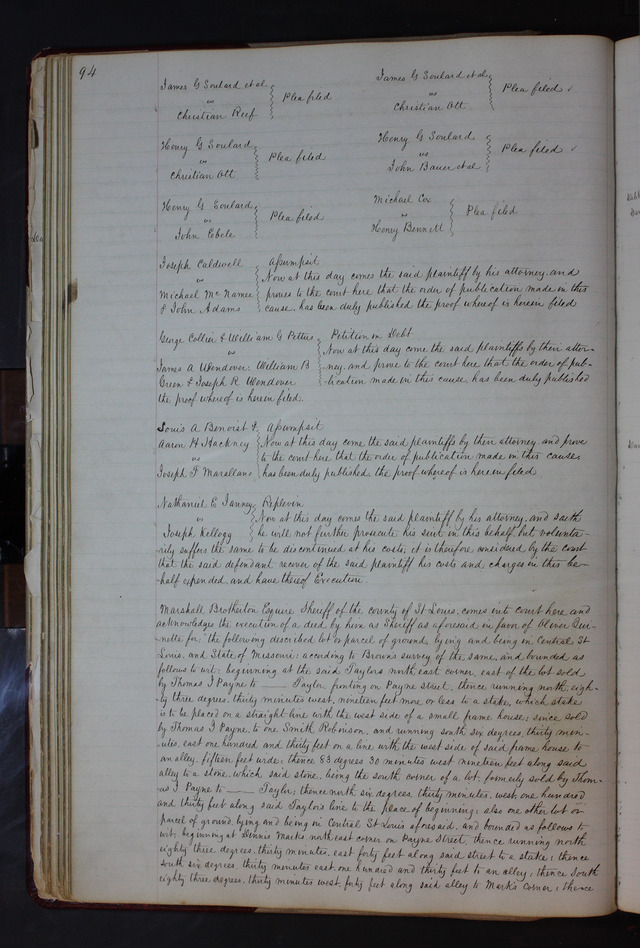 94
James G Soulard et al
vs
Christian Reef
Plea filed
James G Soulard et al
vs
Christian Ott
Plea filed
Henry G Soulard
vs
Christian Ott
Plea filed
Henry G Soulard
vs
John Bauer et al
Plea filed
Henry G Soulard
vs
John Ebele
Plea filed
Michael Cox
vs
Henry Bennett
Plea filed
Joseph Caldwell
vs
Michael McNamee
& John Adams
Assumpsit
Now at this day comes the said plaintiff by his attorney, and
proves to the court here that the order of publication made in this
cause, has been duly published the proof whereof is herein filed
George Collier & William G Pettus
vs
James A Wendover, William B
Green & Joseph R Wendover
Petition in Debt
Now at this day come the said plaintiffs by their attor-
ney, and prove to the court here that the order of pub-
lication made in this cause, has been duly published
the proof whereof is herein filed.
Louis A Benoist &
Aaron H Hackney
vs
Joseph F Marallano
Assumpsit
Now at this day come the said plaintiffs by their attorney, and prove
to the court here that the order of publication made in this cause,
has been duly published, the proof whereof is herein filed
Nathaniel E Janney
vs
Joseph Kellogg
Replevin
Now at this day comes the said plaintiff by his attorney, and saith
he will not further prosecute his suit in this behalf, but volunta-
rily suffers the same to be discontinued at his costs, it is therefore considered by the court
that the said defendant recover of the said plaintiff his costs and charges in this be-
half expended, and have thereof Execution.
Marshall Brotherton Esquire Sheriff of the county of St Louis, comes into court here and
acknowledges the execution of a deed by him as Sheriff as aforesaid in favor of Oliver Qui-
nette for, the following described lot or parcel of ground, lying and being in Central St
Louis, and State of Missouri: acording to Brown's survey of the same, and bounded as
follows to wit: beginning at the said Taylors north east corner, east of the lot sold
by Thomas J Payne to ___ Taylor fronting on Payne street, thence running north, eigh-
ty three degrees, thirty minutes west, nineteen feet more or less to a stake, which stake
is to be placed on a straight line with the west side of a small frame house; since sold
by Thomas J. Payne, to one Smith Robinson, and running south six degrees, thirty min-
utes, east one hundred and thirty feet on a line with the west side of said frame house to
an alley, fifteen feet wide; thence 83 degrees 30 minutes west nineteen feet along said
alley to a stone, which said stone, being the south corner of a lot, formerly sold by Thom-
as J Payne to ___ Taylor; thence north six degrees, thirty minutes, west, one hundred
and thirty feet along said Taylor's line to the place of beginning; also one other lot or
parcel of ground, lying and being in Central St Louis aforesaid, and bounded as follows to
wit, beginning at Dennis Marks north east corner on Payne Street, thence running north
eighty three degrees, thirty minutes, east forty feet along said street to a stake; thence
south six degrees, thirty minutes east one hundred and thirty feet to an alley; thence South
eighty three degrees, thirty minutes west, forty feet along said alley to Mark's corner; thence